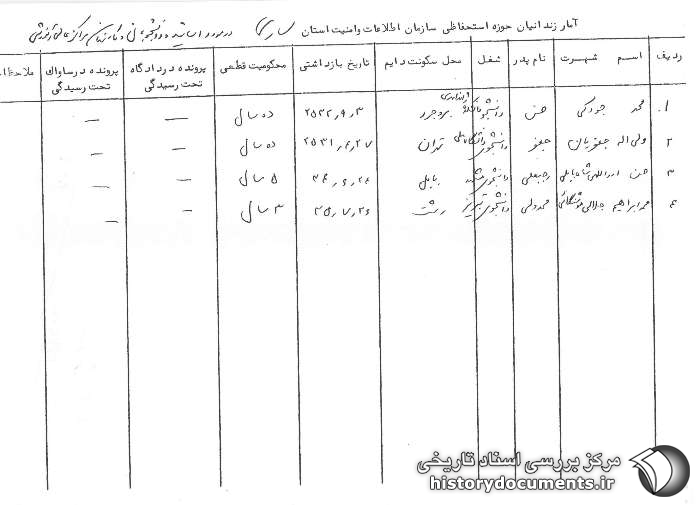 آمار زندانیان حوزه استحفاظی سازمان اطلاعات وامنیت استان ساری در مورد اساتید و دانشجویان و کارکنان مراکز عالی آموزشی
ردیف اسم شهرت نام پدر شغل محل سکونت دایم تاریخ بازداشتی محکومیت قطعی پرونده در دادگاه تحت رسیدگی پرونده در ساواك تحت رسیدگی ملاحظا
۱. محمد جودکی حسن دانشجو بروجرد ۲۵۳۲،۹،۳ ده سال — —
۲ ولی اله جعفریان جعفر دانشجوی تهران ۲۵۳۱،۶،۲۷ ده سال — —
۳ حسن رجبعلی دانشجوی بابل ۵ سال — —
۴ محمد ابراهیم جلالی محمدولی دانشجوی تبریز رشت ۳۵،۷،۲۶ ۳ سال — —
مرکز بررسی اسناد تاریخی
historydocuments.ir